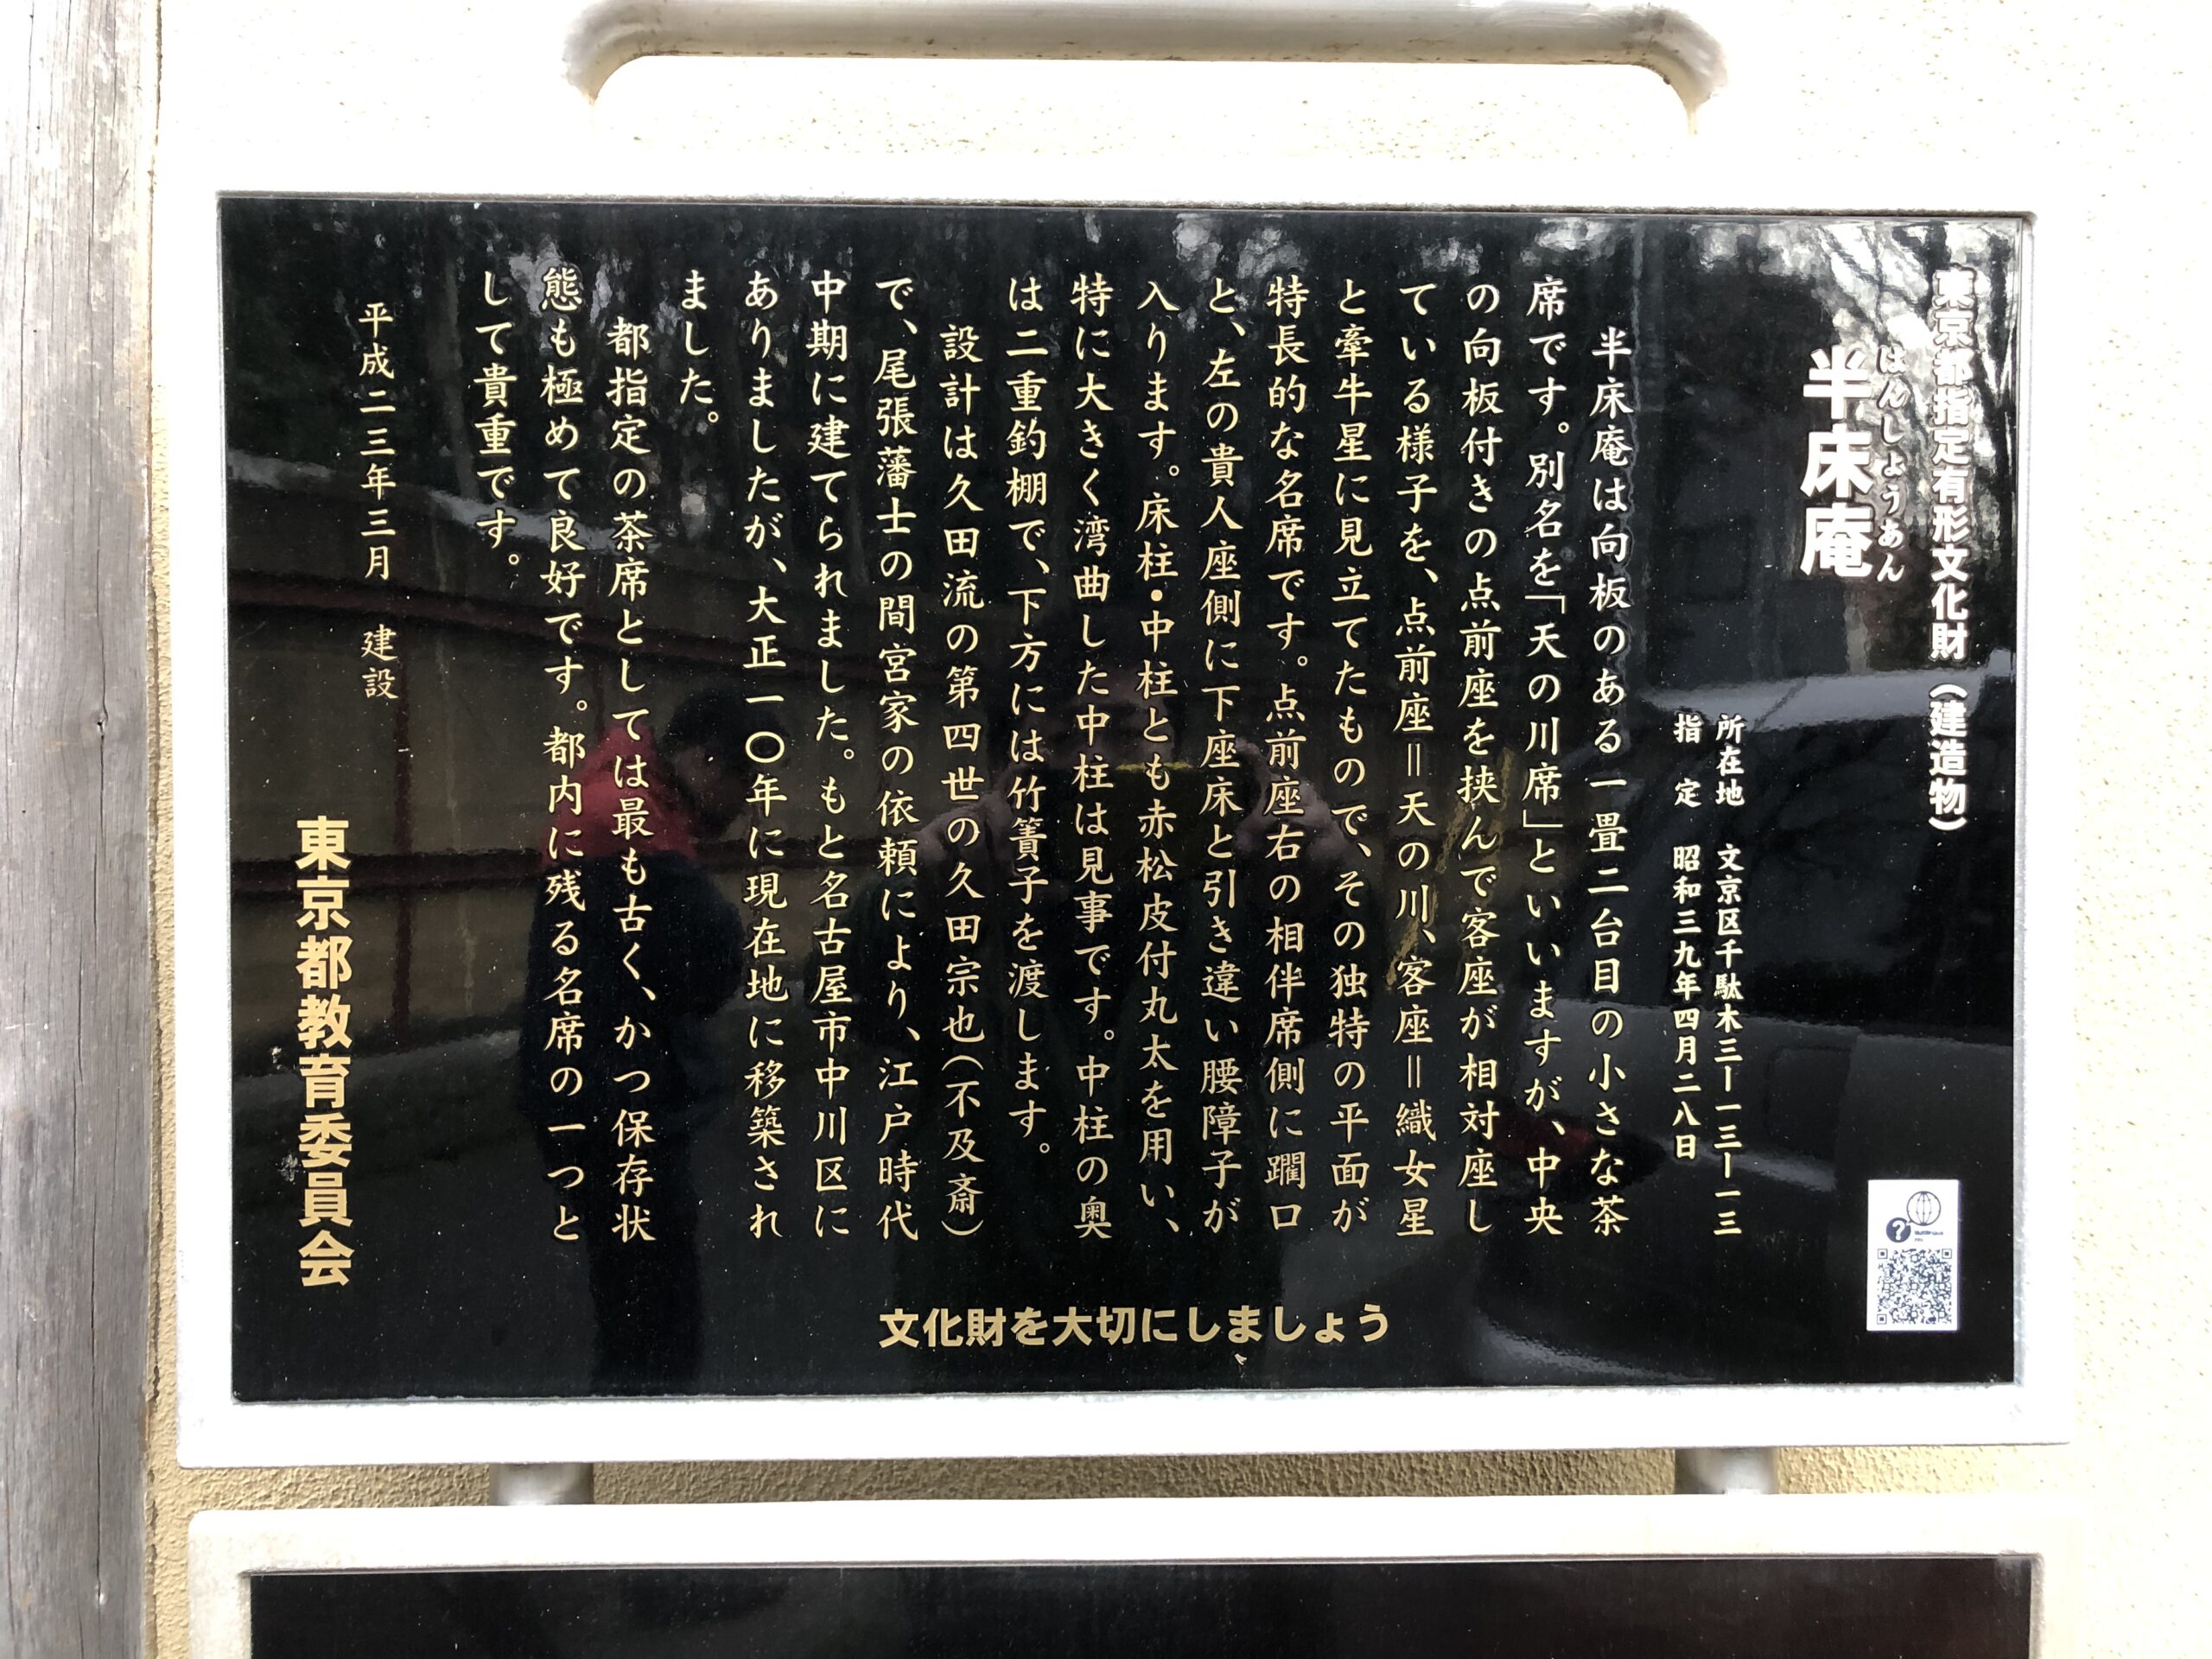 東京都指定有形文化財（建造物）
はんしょうあん
半床庵
所在地　文京区千駄木三ー一三ー一三
指　定　昭和三九年四月二八日
半床庵は向板のある一畳二台目の小さな茶
席です。別名を「天の川席」といいますが、中央
の向板付きの点前座を挟んで客座が相対座し
ている様子を、点前座＝天の川、客座＝織女星
と牽牛星に見立てたもので、その独特の平面が
特長的な名席です。点前座右の相伴席側に躙口
と、左の貴人座側に下座床と引き違い腰障子が
入ります。床柱・中柱とも赤松皮付丸太を用い、
特に大きく湾曲した中柱は見事です。中柱の奥
は二重釣棚で、下方には竹簀子を渡します。
設計は久田流の第四世の久田宗也（不及斎）
で、尾張藩士の間宮家の依頼により、江戸時代
中期に建てられました。もと名古屋市中川区に
ありましたが、大正一〇年に現在地に移築され
ました。
都指定の茶席としては最も古く、かつ保存状
態も極めて良好です。都内に残る名席の一つと
して貴重です。
平成二三年三月　建設
東京都教育委員会
文化財を大切にしましょう